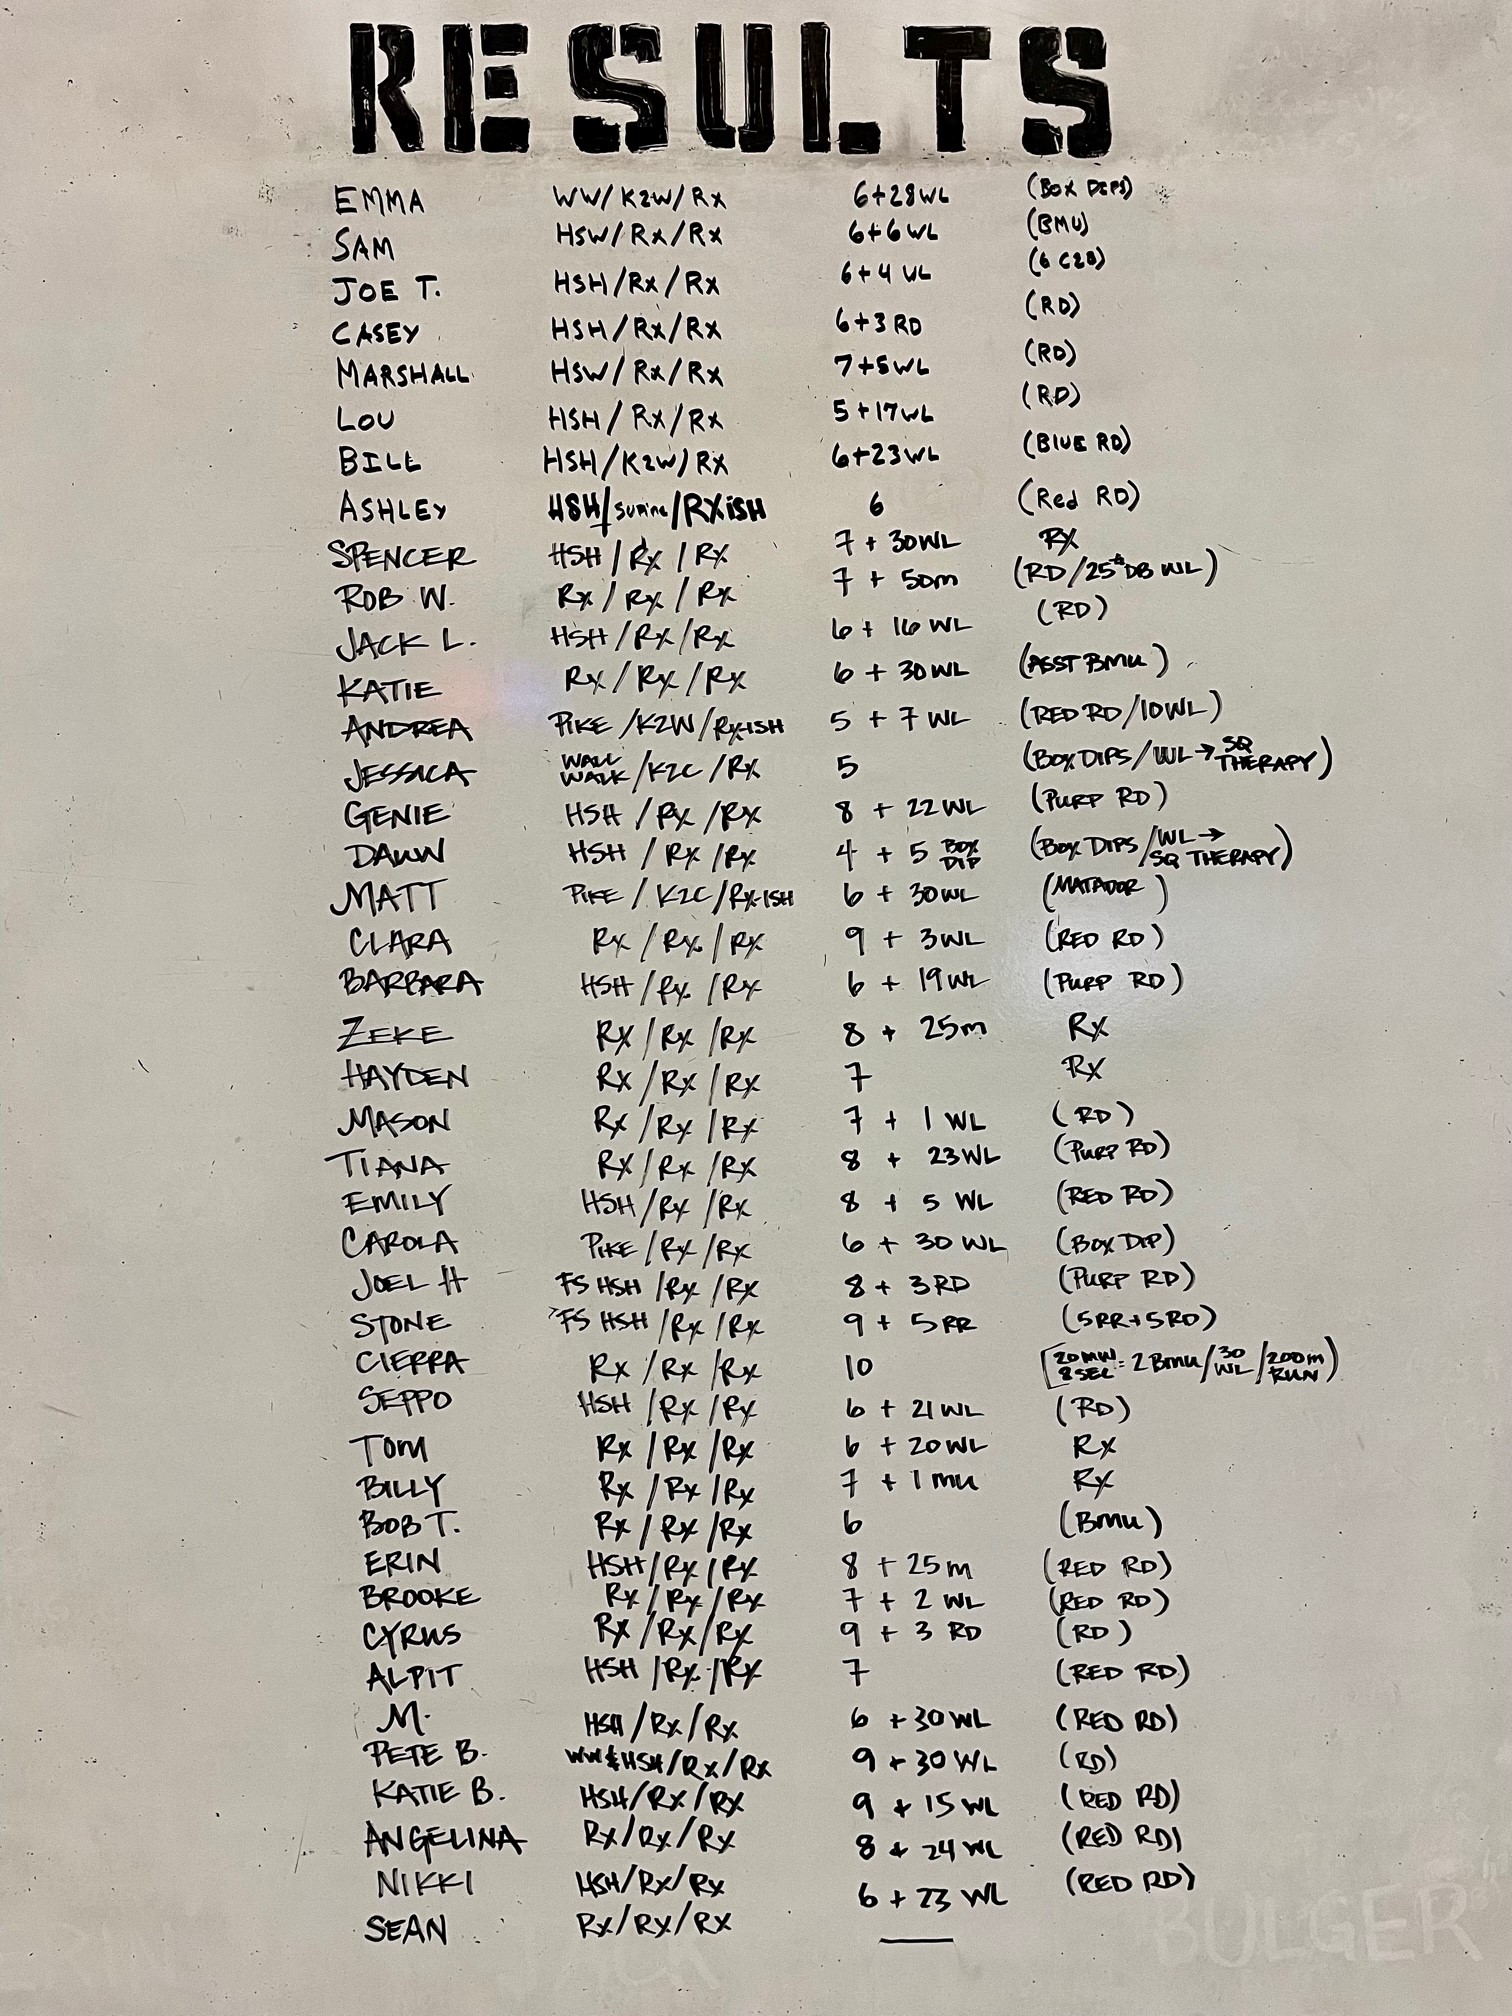 RESULTS
EMMA WW/K2W/Rx 6+28WL (BOX DIPS)
SAM HSW/Rx/Rx 6+6WL (BMU)
JOE T. HSH/Rx/Rx 6+4 WL (6 C2B)
CASEY HSH/Rx/Rx 6+3 RD (RD)
MARSHALL HSW/Rx/Rx 7+5WL (RD)
LOU HSH/Rx/Rx 5+17WL (RD)
BILL HSH/K2W/RX 6+23WL (BLUE RD)
ASHLEY HSH/supine/RXiSH 6 (Red RD)
SPENCER HSH/Rx/RX 7 + 30WL RX
ROB W. Rx/Rx/Rx 7 + 50m (RD/25# DB WL)
JACK L. HSH/Rx/Rx 6 + 16 WL (RD)
KATIE Rx/Rx/Rx 6 + 30WL (ASST BMU)
ANDREA PIKE/K2W/Rx-ISH 5 + 7 WL (RED RD/10WL)
JESSICA WALL WALK/K2C/Rx 5 (BOX DIPS/WL→SQ THERAPY)
GENIE HSH/Rx/Rx 8 + 22WL (PURP RD)
DAWN HSH/Rx/Rx 4 + 5 BOX DIP (BOX DIPS/WL→SQ THERAPY)
MATT PIKE/K2C/Rx-ISH 6 + 30WL (MATADOR)
CLARA Rx/Rx/Rx 9 + 3WL (RED RD)
BARBARA HSH/Rx/Rx 6 + 19WL (PURP RD)
ZEKE RX/Rx/Rx 8 + 25m Rx
HAYDEN Rx/Rx/Rx 7 Rx
MASON Rx/Rx/Rx 7 + 1 WL (RD)
TIANA Rx/Rx/Rx 8 + 23WL (PURP RD)
EMILY HSH/Rx/Rx 8 + 5 WL (RED RD)
CAROLA PIKE/Rx/Rx 6 + 30 WL (BOX DIP)
JOEL H FS HSH/Rx/Rx 8 + 3RD (PURP RD)
STONE FS HSH/Rx/Rx 9 + 5RR (5RR+5RD)
CIERRA Rx/Rx/Rx 10 [20MW 8SEC = 2BMU/30 WL/200m RUN)
SEPPO HSH/Rx/Rx 6 + 21WL (RD)
TOM Rx/Rx/Rx 6 + 20WL Rx
BILLY Rx/Rx/Rx 7 + 1 MU Rx
BOB T. Rx/Rx/Rx 6 (BMU)
ERIN HSH/Rx/Rx 8 + 25m (RED RD)
BROOKE Rx/Rx/Rx 7 + 2 WL (RED RD)
CYRUS Rx/Rx/Rx 9 + 3 RD (RD)
ALPIT HSH/Rx/Rx 7 (RED RD)
M. HSH/Rx/Rx 6 + 30WL (RED RD)
PETE B. WW&HSH/Rx/Rx 9 + 30WL (RD)
KATIE B. HSH/Rx/Rx 9 + 15 WL (RED RD)
ANGELINA Rx/Rx/Rx 8 + 24 WL (RED RD)
NIKKI HSH/Rx/Rx 6 + 23 WL (RED RD)
SEAN Rx/Rx/Rx —
ERIN JACK BULGER